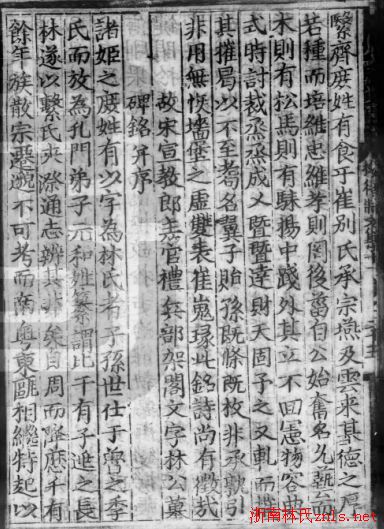 繄齊庶姓有食于崔別氏承宗燕及雲來基德之厚
若種而培維忠維孝則罔後自公始奮名允
木則有松馬則有騄揚中踐外其立不回憲物容典
式時討裁烝烝成乂暨暨達財天固予之又軋而
其摧曷以不至耇名翼子貽孫既條既枚非承歟引
非用無恢墻堡之虛雙表崔嵬掾此銘詩尚有徵哉
故宋宣教郎主官禮兵部架閣文字林公墓
碑銘并序
諸姬之庶姓有以字為林氏者子孫世仕于魯之季
氏而放為孔門弟子元和姓纂謂比干有子逃之長
林遂以繫氏夾漈通志辨其非矣自周而千有
餘年族散宗邈不可考而閩粵東甌相繼特起以
浙南林氏znls.net